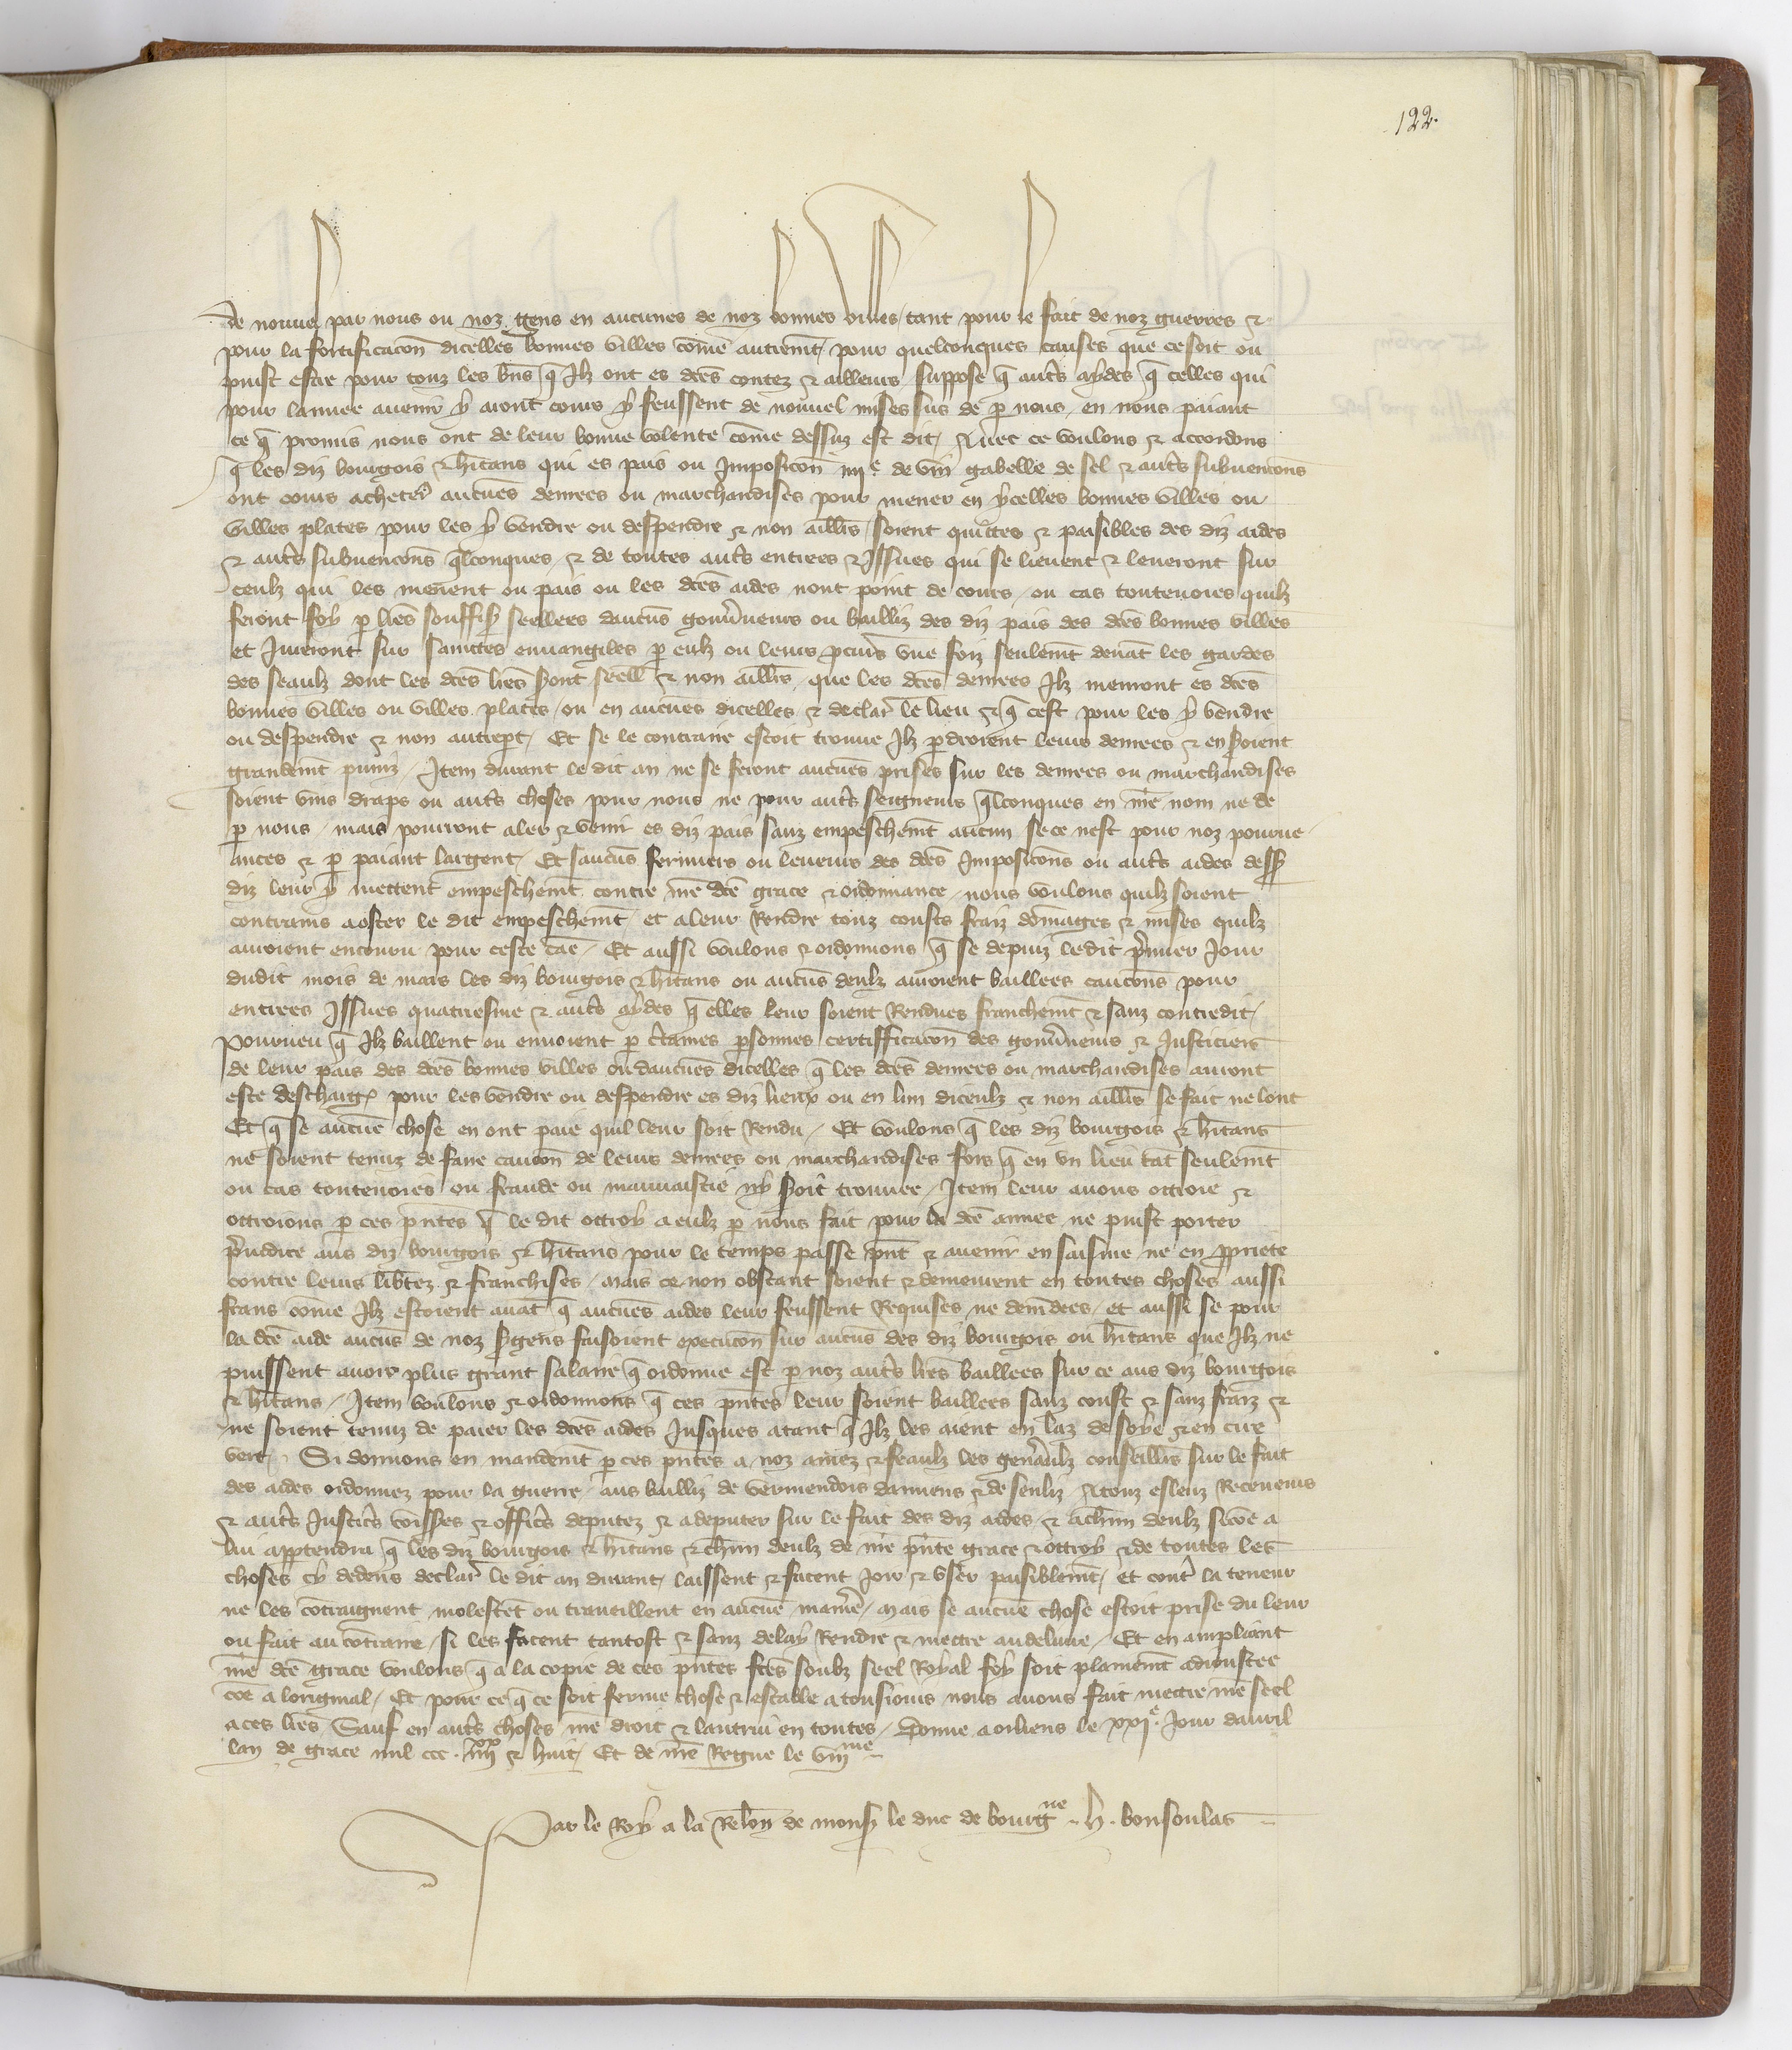 122.
De nouuel par nous ou noz gens en aucunes de noz bonnes villes tant pour le fait de noz guerres &
pour la fortificacōn dicelles bonnes villes cōme autremt pour quelconques causes que ce soit ou
puist estre pour touz les biēs q̄ Ilz ont es dc̄es contez & ailleurs suppose q̄ aut̄s aydes q̄ celles qui
pour lannee auenir y aiont cours y feussent de nouuel mises sus de p nous en nous paiant
ce q̄ promis nous ont de leur bonne volente cōme dessuz est dit / Auec ce voulons & accordons
q̄ les diz bourgois & hītans qui es pais ou Imposicōn iiij.e de vin gabelle de sel & aut̄s subuencōns
ont cours acheter aucūes denrees ou marchandises pour mener en ycelles bonnes villes ou
villes plates pour les y vendre ou despendre & non aillrs soient quictes & paisibles des diz aides
& aut̄s subuencōns q̄lconques & de toutes aut̄s entrees & Issues qui se lieuent & leueront sur
ceulz qui les meinent ou pais ou les dc̄es aides nont point de cours / ou cas toutenoies quilz
feront foy p lr̄es souffis seellees daucūs gouūneurs ou bailliz des diz pais des dc̄es bonnes villes
et Jureront sur sainctes euuangiles p eulz ou leurs p̄cūrs vne foiz seulemt deuāt les gardes
des seaulz dont les dc̄es lr̄es sont seell & non aillrs que les dc̄es denrees Ilz menront es dc̄es
bonnes villes ou villes plates / ou en aucūes dicelles & declar le lieu & q̄ cest pour les y vendre
ou despendre & non autrept / Et se le contraire estoit trouue Ilz pdroient leurs denrees & en s̄oient
grandemt puniz / Item durant le dit an ne se feront aucūes prises sur les denrees ou marchandises
soient vins draps ou aut̄s choses pour nous ne pour aut̄s seigneurs q̄lconques en nr̄e nom ne de
p nous / mais pourront aler & venir es diz pais sanz empeschemt aucun se ce nest pour noz pourue
ances & p paiant largent / Et saucūs fermiers ou leueurs des dc̄es Imposicōns ou aut̄s aides dess
diz leur y mettent empeschemt contre nr̄e dc̄e grace & ordonnance / nous voulons quilz soient
contrains a oster le dit empeschemt et a leur Rendre touz cousts fraiz dōmages & mises quilz
auroient encouru pour ceste cāe / Et aussi voulons & ordonnons q̄ se depuiz ledit p̄mier Jour
dudit mois de mars les diz bourgois & hītans ou aucūs deulz auoient baillees caucōns pour
entrees Issues quatriesme & aut̄s aydes q̄ elles leur soient Rendues franchemt & sanz contredit /
Pourueu q̄ Ilz baillent ou enuoient p c̄taines psonnes certifficacōn des gouūneurs & Justiciers
de leur pais des dc̄es bonnes villes ou daucūes dicelles q̄ les dc̄es denrees ou marchandises auront
este deschargs pour les vendre ou despendre es diz lieux ou en lun diceulz & non aillrs se fait ne lont
Et q̄ se aucūe chose en ont paie quil leur soit Rendu / Et voulons q̄ les diz bourgois & hītans
ne soient tenuz de faire caucōn de leurs denrees ou marchandises fors q̄ en vn lieu tāt seulemt
ou cas toutenoies ou fraude ou mauuaistie ny s̄oit trouuee / Item leur auons ottroie &
ottroions p ces p̄ntes q̄ le dit ottroy a eulz p nous fait pour la dc̄e annee ne puist porter
p̄iudice aus diz bourgois & hītans pour le temps passe p̄nt & auenir en saisine ne en p̄priete
contre leurs lib̄tez & franchises / mais ce non obstant soient & demeurent en toutes choses aussi
frans cōme Ilz estoient auāt q̄ aucūes aides leur feussent Requises ne demādees / et aussi se pour
la dc̄e aide aucūs de noz s̄gens faisoient execucōn sur aucūs des diz bourgois ou hītans que Ilz ne
puissent auoir plus grant salaire q̄ ordonne est p noz aut̄s lr̄es baillees sur ce aus diz bourgois
& hītans / Item voulons & ordonnons q̄ ces p̄ntes leur soient baillees sanz coust & sanz fraiz &
ne soient tenuz de paier les dc̄es aides Jusques atant q̄ Ilz les aient en laz de soye & en cire
vert / Si donnons en mandemt p ces p̄ntes a noz amez & feaulz les gen̄aulz conseillrs sur le fait
des aides ordonnez pour la guerre / aus bailliz de vermendois damiens & de senliz / Atouz esleuz Receueurs
& aut̄s Justic̄rs & offic̄rs deputez & adeputer sur le fait des diz aides & achūn deulz sicōe a
lui apptendra q̄ les diz bourgois & hītans & chūn deulz de nr̄e p̄nte grace & ottroy & de toutes les
choses cy dedens declar le dit an durant / laissent & facent Joir & vser paisiblemt / et cont̄ la teneur
ne les cōtraignent molestēt ou trauillent en aucūe manīe / mais se aucūe chose estoit prise du leur
ou fait au cōtraire / si les facent tantost & sanz delay Rendre & mectre audeliure / Et en ampliant
nr̄e dc̄e grace voulons q̄ a la copie de ces p̄ntes fc̄es soubz seel Royal foy soit plainemt adioustee
cōe a loriginal / Et pour ce q̄ ce soit ferme chose & estable a tousiours nous auons fait mettre nr̄e seel
a ces lr̄es Sauf en aut̄s choses nr̄e droit & lautrui en toutes / Donne a orliens le xxj.e Jour dauril
lan de grace mil ccc . iiijxx & huit / Et de nr̄e Regne le viijme
Par le Roy a la Relōn de mons le duc de bourgne . h . bonsoulas